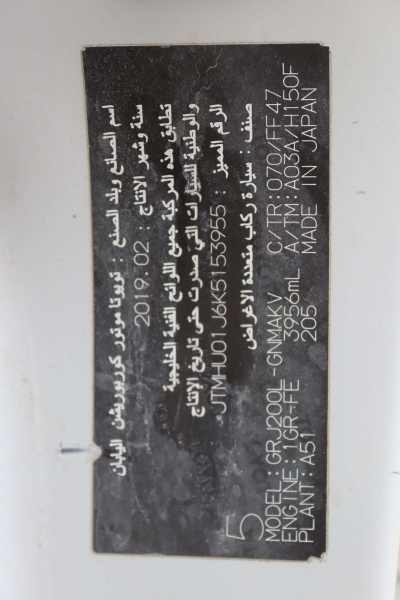 اسم الصانع وبلد الصنع : تويوتا موتور كوربوريشن اليابان
سنة وشهر الانتاج : 2019.02
تطابق هذه المركبة جميع اللوائح الفنية الخليجية
والوطنية للسيارات التي صدرت حتى تاريخ الإنتاج
الرقم المميز : JTMHU01J6K5153955
صنف : سيارة ركاب متعددة الأغراض
5
MODEL: GRJ200L-GNMAKV C/TR: 070/FF47
ENGINE: 1GR-FE 3956mL A/TM: A03A/H150F
PLANT: A51 205 MADE IN JAPAN